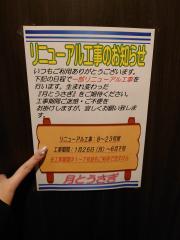 リニューアル工事のお知らせ
いつもご利用ありがとうございます。
下記の日程で一部リニューアル工事を
行います。生まれ変わった
『月とうさぎ』をご期待ください。
工事期間ご迷惑・ご不便を
お掛けしますが、宜しくお願い致しま
す。
リニューアル工事:8~23号室
工事期間:1月26日(月)~6月予定
月とうさぎ